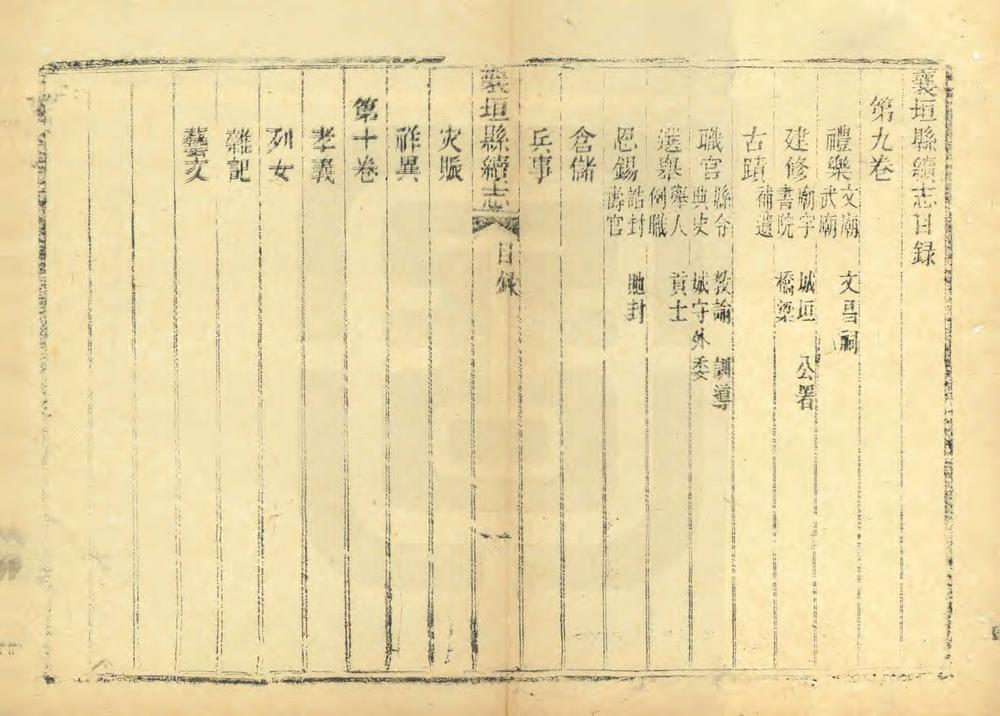 襄垣縣續志目録
第九卷
禮樂 文廟 武廟 文昌祠
建修 廟宇 書院 城垣 橋梁 公署
古蹟 補遺
職官 縣令 典史 教諭 城守外委 訓導
選舉 舉人 例職 貢士
恩錫 誥封 壽官 貤封
倉儲
兵事
襄垣縣續志 目録 一
灾賑
祥異
第十卷
孝義
列女
雜記
藝文